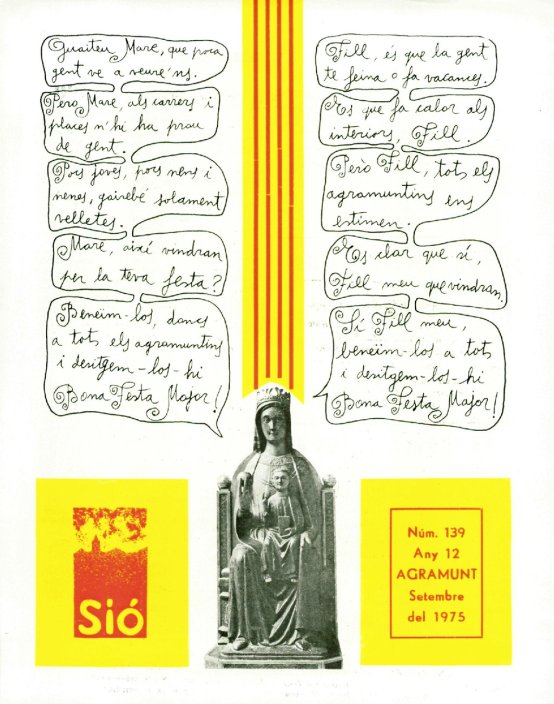 Guaiteu Mare, que poca
gent ve a veure'ns.
Però Mare, als carrers i
places n'hi ha prou
de gent.
Pocs joves, pocs nens i
nenes, gairebé solament
velletes.
Mare, així vindran
per la teva festa?
Beneïm-los, doncs
a tots els agramuntins
i desitgem-los-hi
Bona Festa Major!
Fill, és que la gent
té feina o fa vacances.
És que fa calor als
interiors, Fill.
Però Fill, tots els
agramuntins ens
estimen.
És clar que sí,
Fill meu que vindran.
Sí Fill meu,
beneïm-los a tots
i desitgem-los-hi
Bona Festa Major!
Sió
Núm. 139
Any 12
AGRAMUNT
Setembre
del 1975